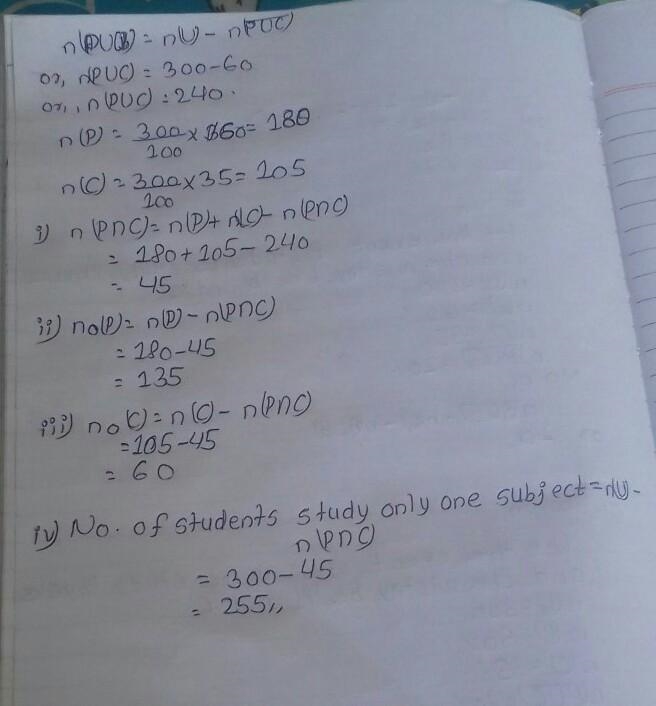 n(PUC) = n(U) - n(PUC)
or, n(PUC) = 300-60
or, n(PUC) = 240.
n(P) = 300/100 × 60 = 180
n(C) = 300/100 × 35 = 105
i) n(P∩C) = n(P) + n(C) - n(P∩C)
= 180 + 105 - 240
= 45
ii) no(P) = n(P) - n(P∩C)
= 180-45
= 135
iii) no(C) = n(C) - n(P∩C)
= 105-45
= 60
iv) No. of students study only one subject = n(U) -
n(P∩C)
= 300-45
= 255,,